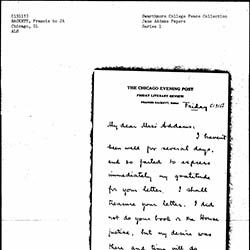 HACKETT, Francis to JA
Chicago, IL
ALS
Swarthmore College Peace Collection
Jane Addams Papers
Series 1
THE CHICAGO EVENING POST
FRIDAY LITERARY REVIEW
FRANCIS HACKETT, Editor
Friday
My dear Miss Addams:
I haven't
been well for several days,
and so failed to express
immediately my gratitude
for your letter. I shall
treasure your letter. I did
not do your book in the House
justice, but my desire was
there and time will do